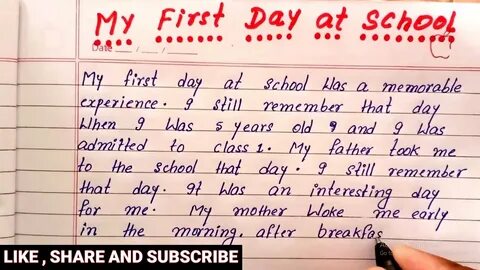 My First Day at School
Date
My first day at school was a memorable
experience. I still remember that day
When I was 5 years old, and I was
admitted to class 1. My father took me
to the school that day. I still remember
that day. It was an interesting day
for me. My mother woke me early
in the morning. after breakfas
LIKE, SHARE AND SUBSCRIBE